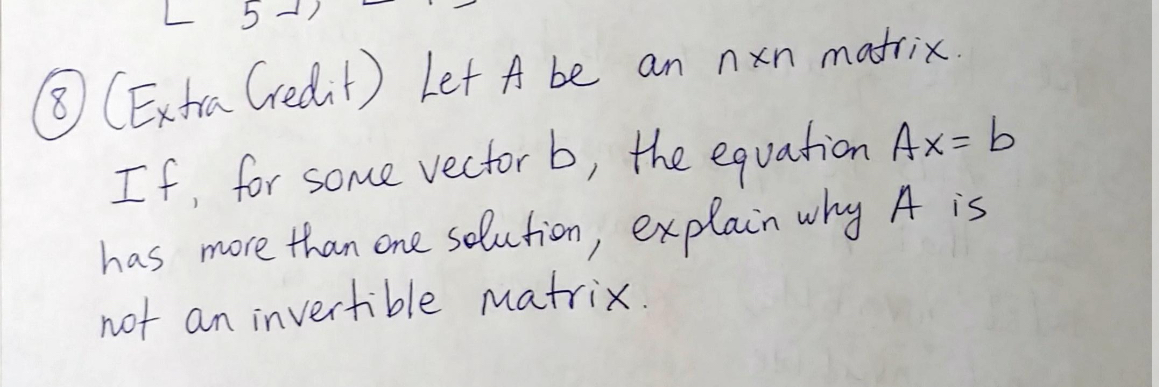 5
⑧ (Extra Credit) Let A be an nxn matrix.
If, for some vector b, the equation Ax = b
has more than one solution, explain why A is
not an invertible matrix.